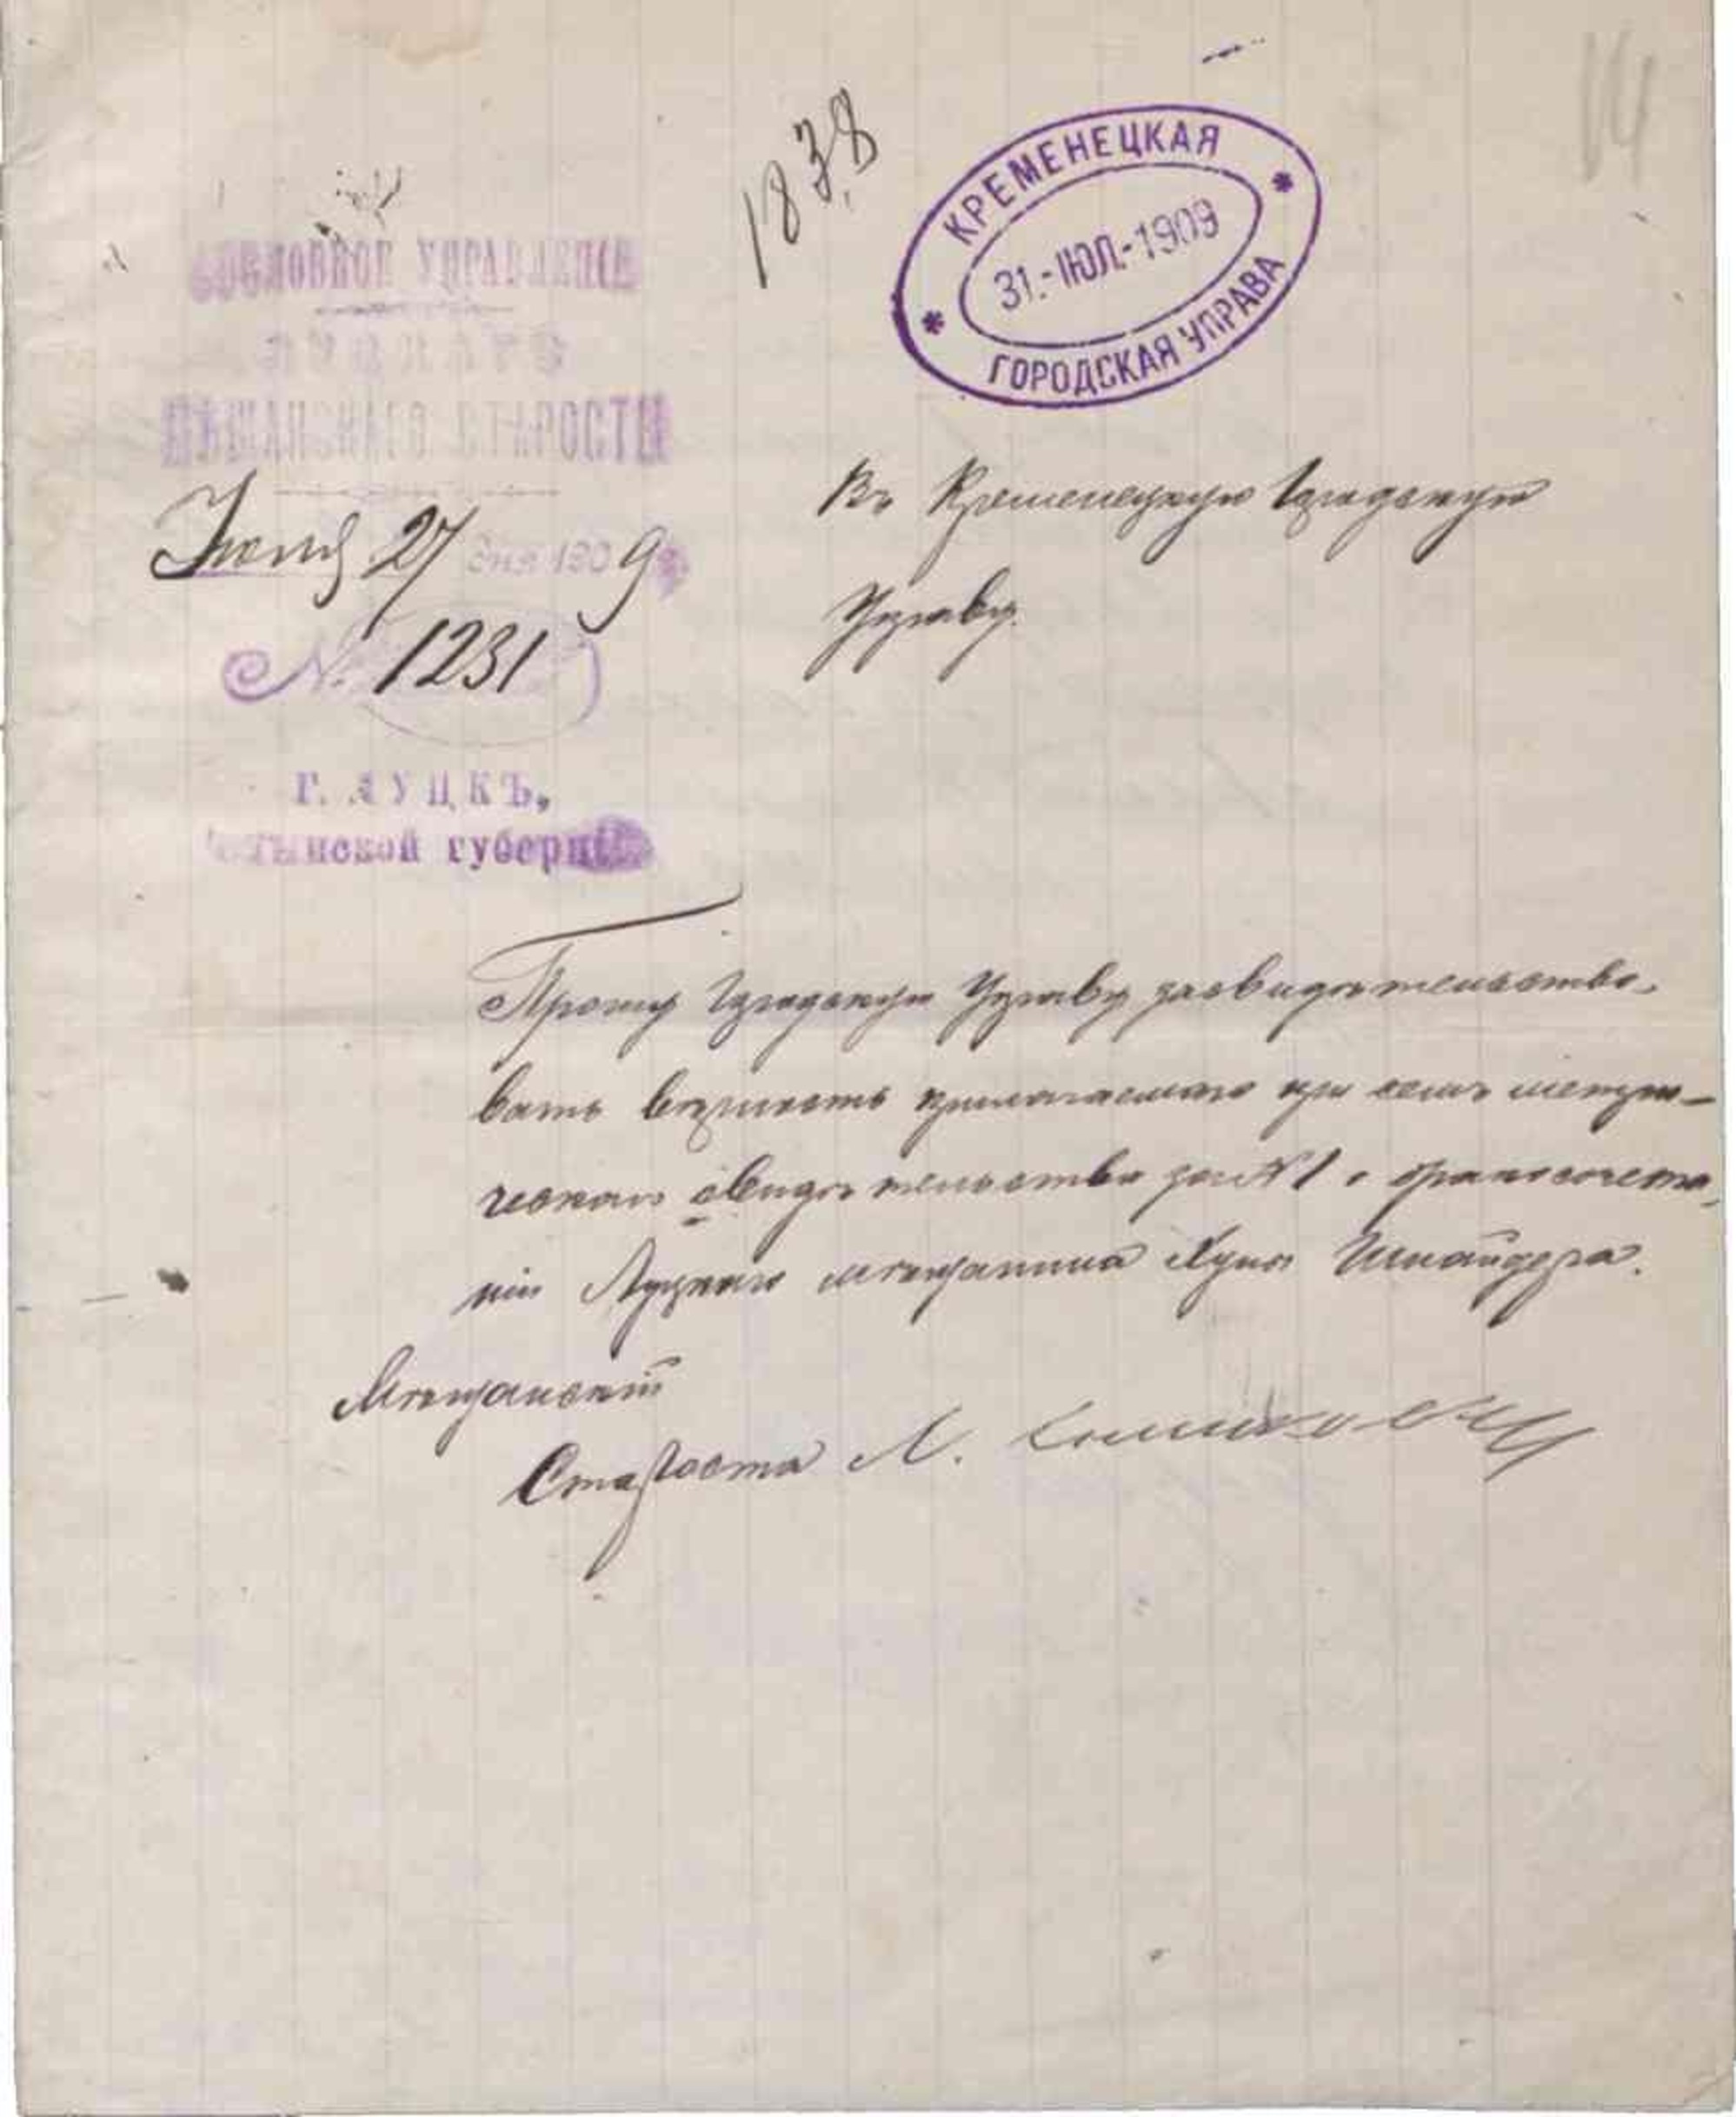 14
1838
КРЕМЕНЕЦКАЯ
31.-ІЮЛ.-1909
ГОРОДСКАЯ УПРАВА
СОСЛОВНОЕ УПРАВЛЕНІЕ
ЛУЦКАГО
МѢЩАНСКАГО СТАРОСТЫ
Іюля 27 дня 1909 г.
№ 1231
Г. ЛУЦКЪ,
Волынской губерніи
Въ Кременецкую Городскую
Управу.
Прошу Городскую Управу засвидѣтельство-
вать вѣрность прилагаемаго при семъ метри-
ческаго свидѣтельства за № 1 о бракосочета-
ніи Луцкаго мѣщанина Шнайдера.
Мѣщанскій
Староста